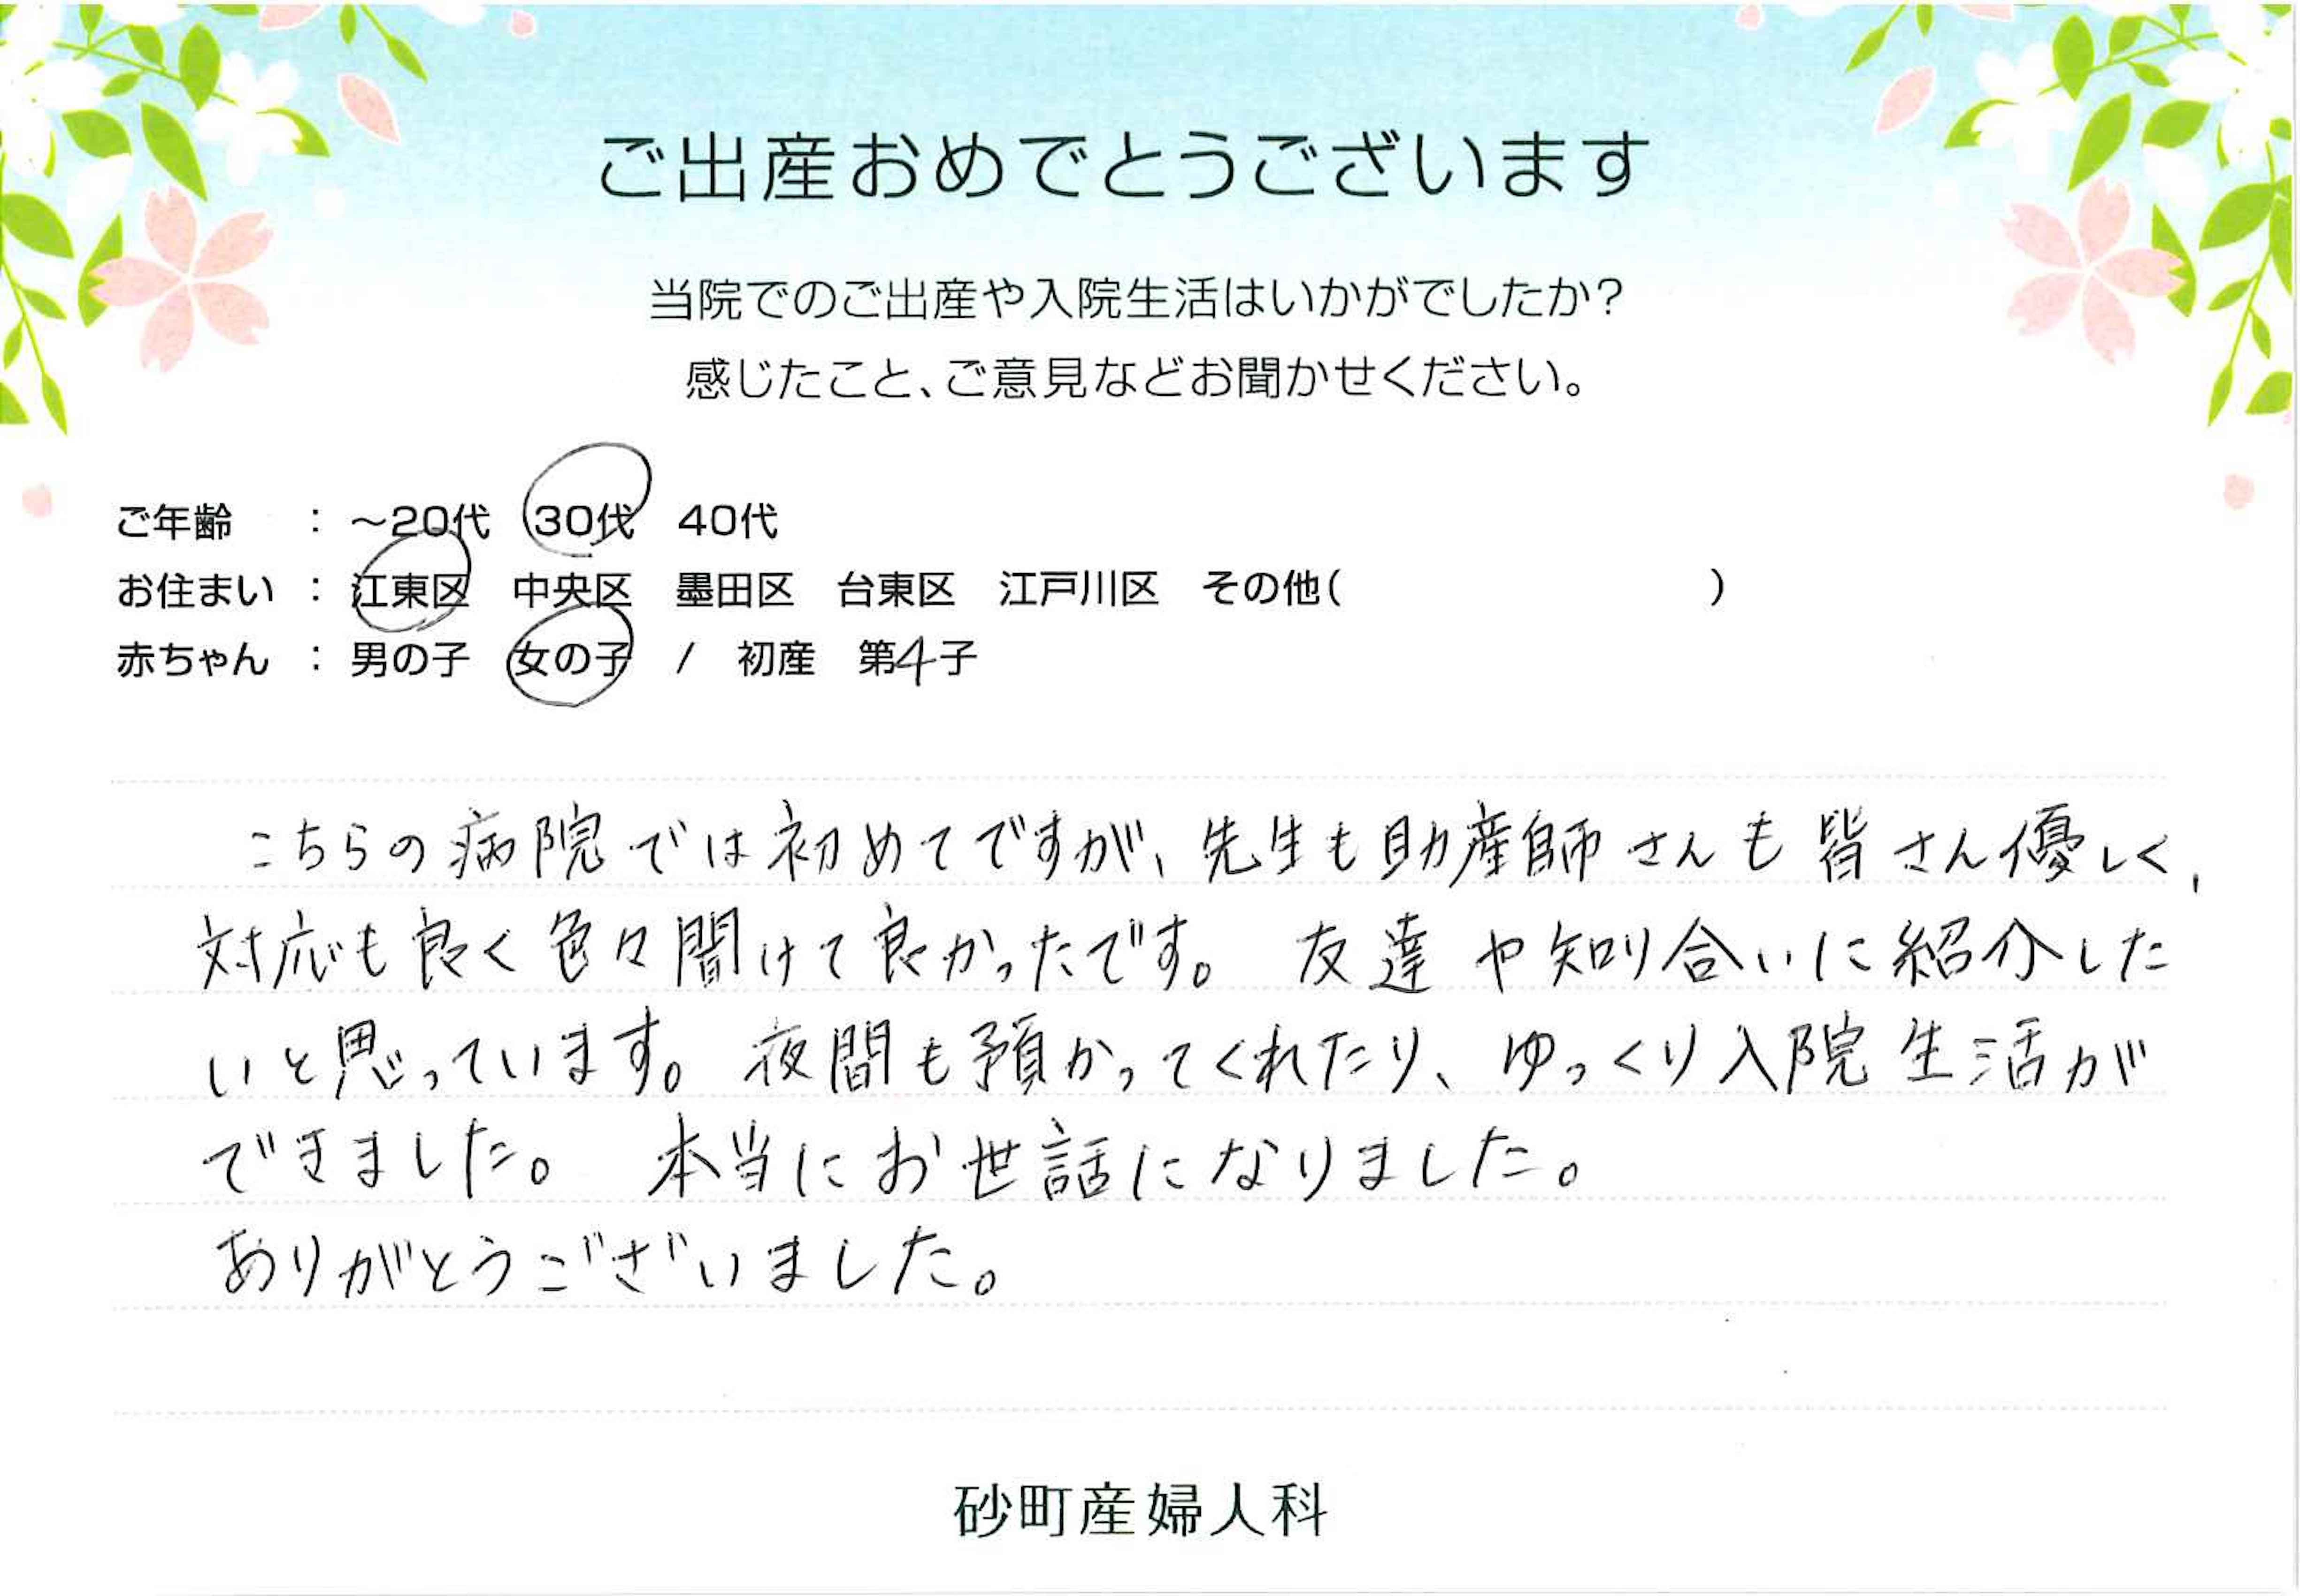 ご出産おめでとうございます
当院でのご出産や入院生活はいかがでしたか?
感じたこと、ご意見などお聞かせください。
ご年齢 : ~20代 30代 40代
お住まい : 江東区 中央区 墨田区 台東区 江戸川区 その他( )
赤ちゃん : 男の子 女の子 / 初産 第4子
こちらの病院では初めてですが、先生も助産師さんも皆さん優しく、
対応も良く色々聞けて良かったです。友達や知り合いに紹介した
いと思っています。夜間も預かってくれたり、ゆっくり入院生活が
できました。 本当にお世話になりました。
ありがとうございました。
砂町産婦人科